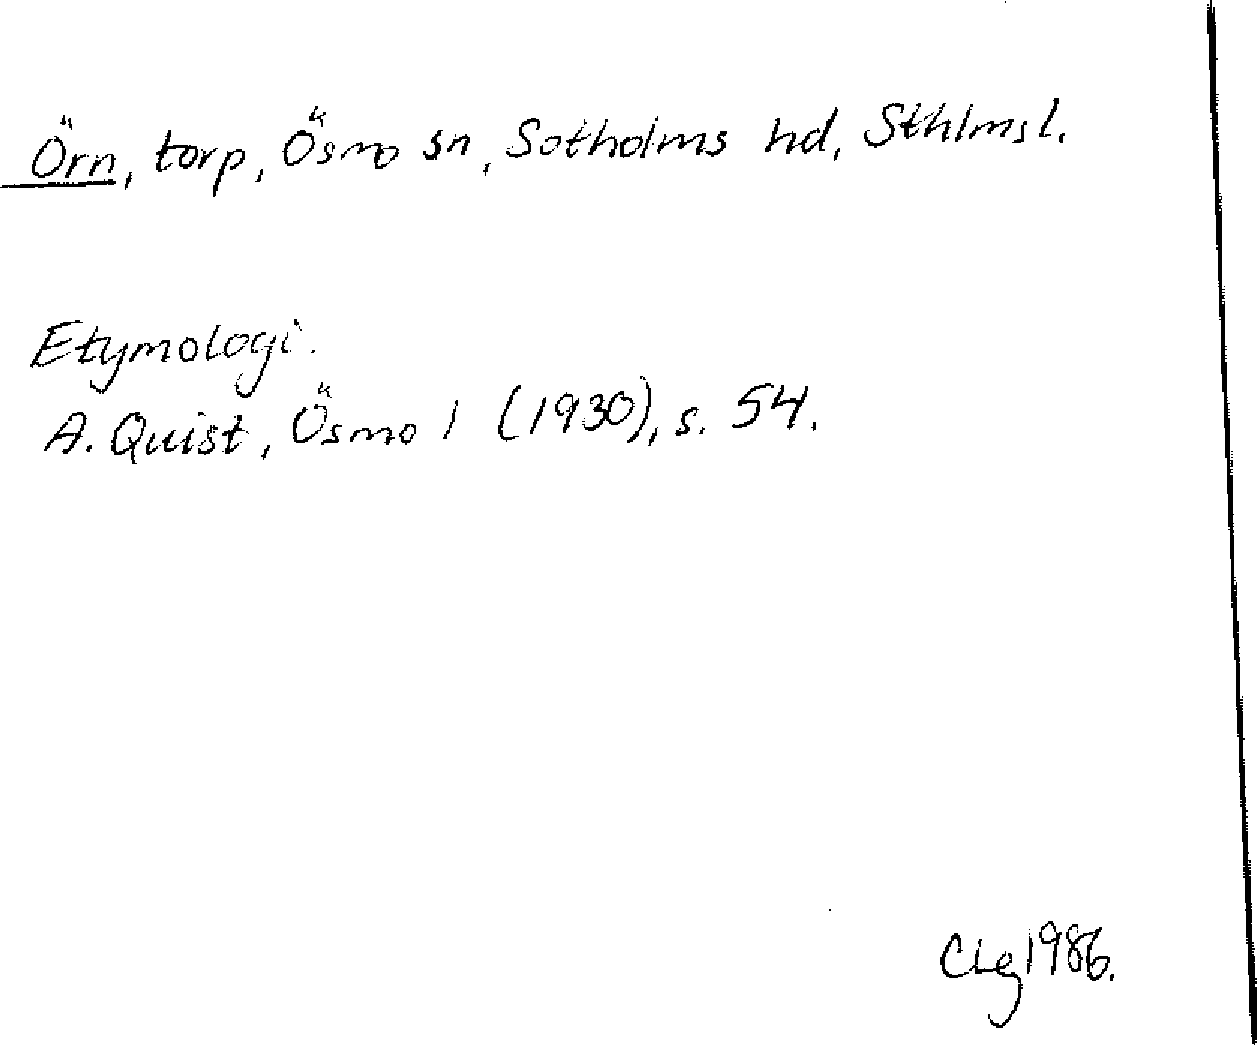 Örn, torp, Ösmo sn, Sotholms hd, Sthlmsl.
Etymologi.
A. Quist, Ösmo 1 (1930), s. 54.
CLg 1986.